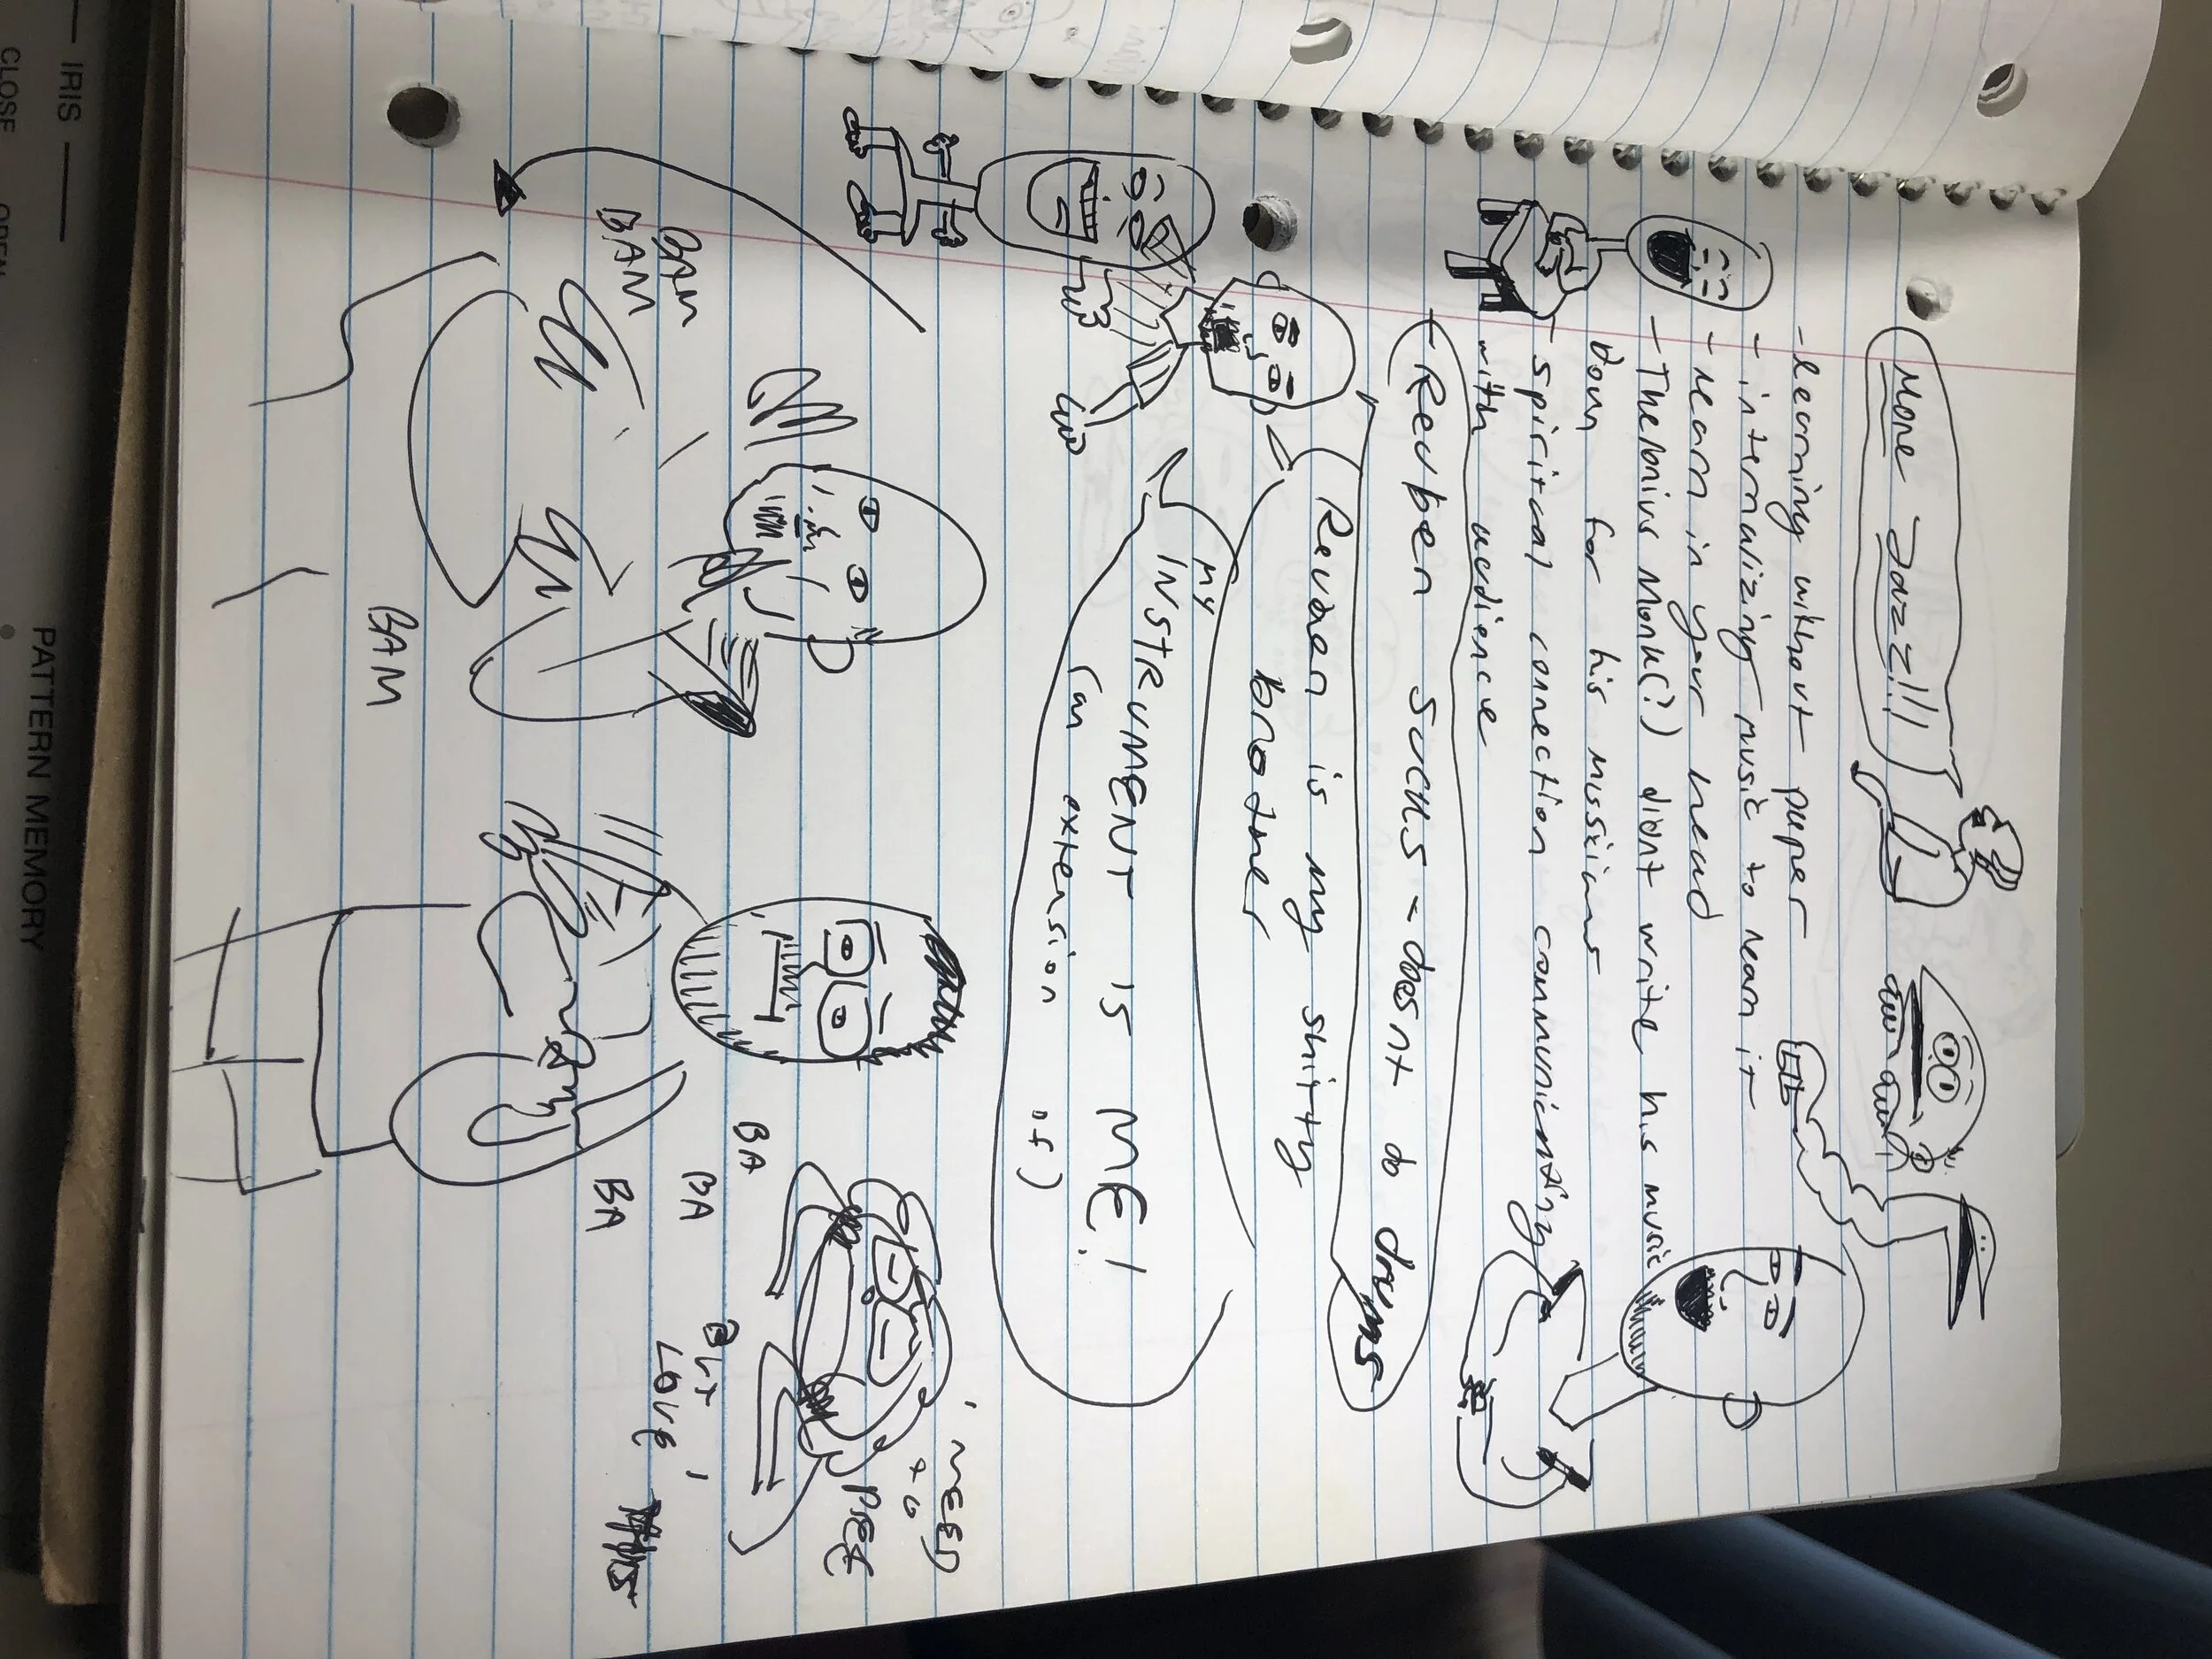 More Jazz!!!
-learning without paper
- internalizing music to learn it
- learn in your head
- Thelonius Monk(?) didnt write his music
down for his musicians
- spiritual connection communicating
with audience
- Reuben sucks - doesnt do drums
Reuben is my shitty
brother
MY
INSTRUMENT IS ME!
(an extension of)
I NEED
to
PEE
BAM
BAM
BAM
BA
BA
BA
But
LOVE
IRIS
CLOSE OPEN
PATTERN MEMORY